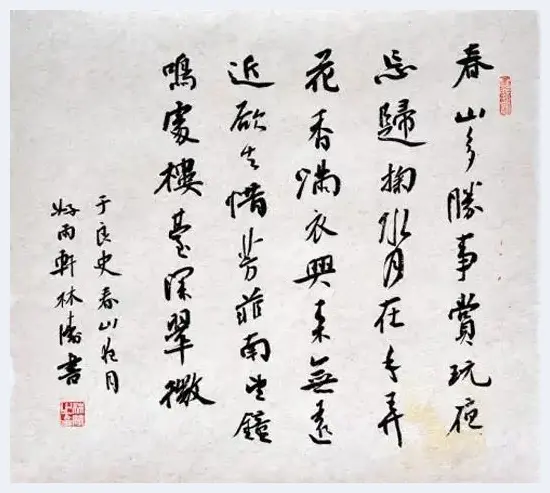 春山多勝事賞玩夜
忘歸掬水月在手弄
花香滿衣興来無遠
近欲去惜芳菲南望鐘
鳴處樓臺深翠微
于良史春山夜月
好雨軒林濤書